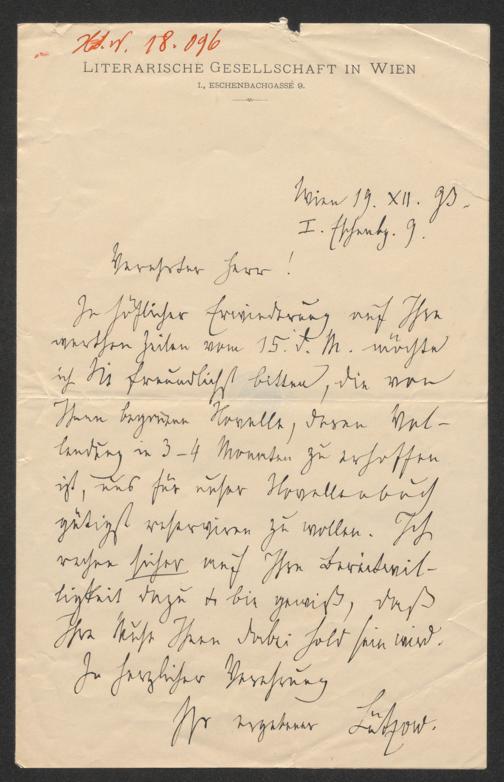 H.I.N. 18.096
LITERARISCHE GESELLSCHAFT IN WIEN
I., ESCHENBACHGASSE 9.
Wien 19. XII. 93.
I. Eschenbg. 9.
Verehrter Herr!
In höflicher Erwiederung auf Ihre
werthen Zeilen vom 15. d. M. möchte
ich Sie freundlichst bitten, die von
Ihnen begonnene Novelle, deren Vol-
lendung in 3–4 Monaten zu erhoffen
ist, uns für unser Novellenbuch
gütigst reserviren zu wollen. Ich
rechne sicher auf Ihre Bereitwil-
ligkeit dazu & bin gewiß, daß
Ihre Muse Ihnen dabei hold sein wird.
In herzlicher Verehrung
Ihr ergebener Lützow.